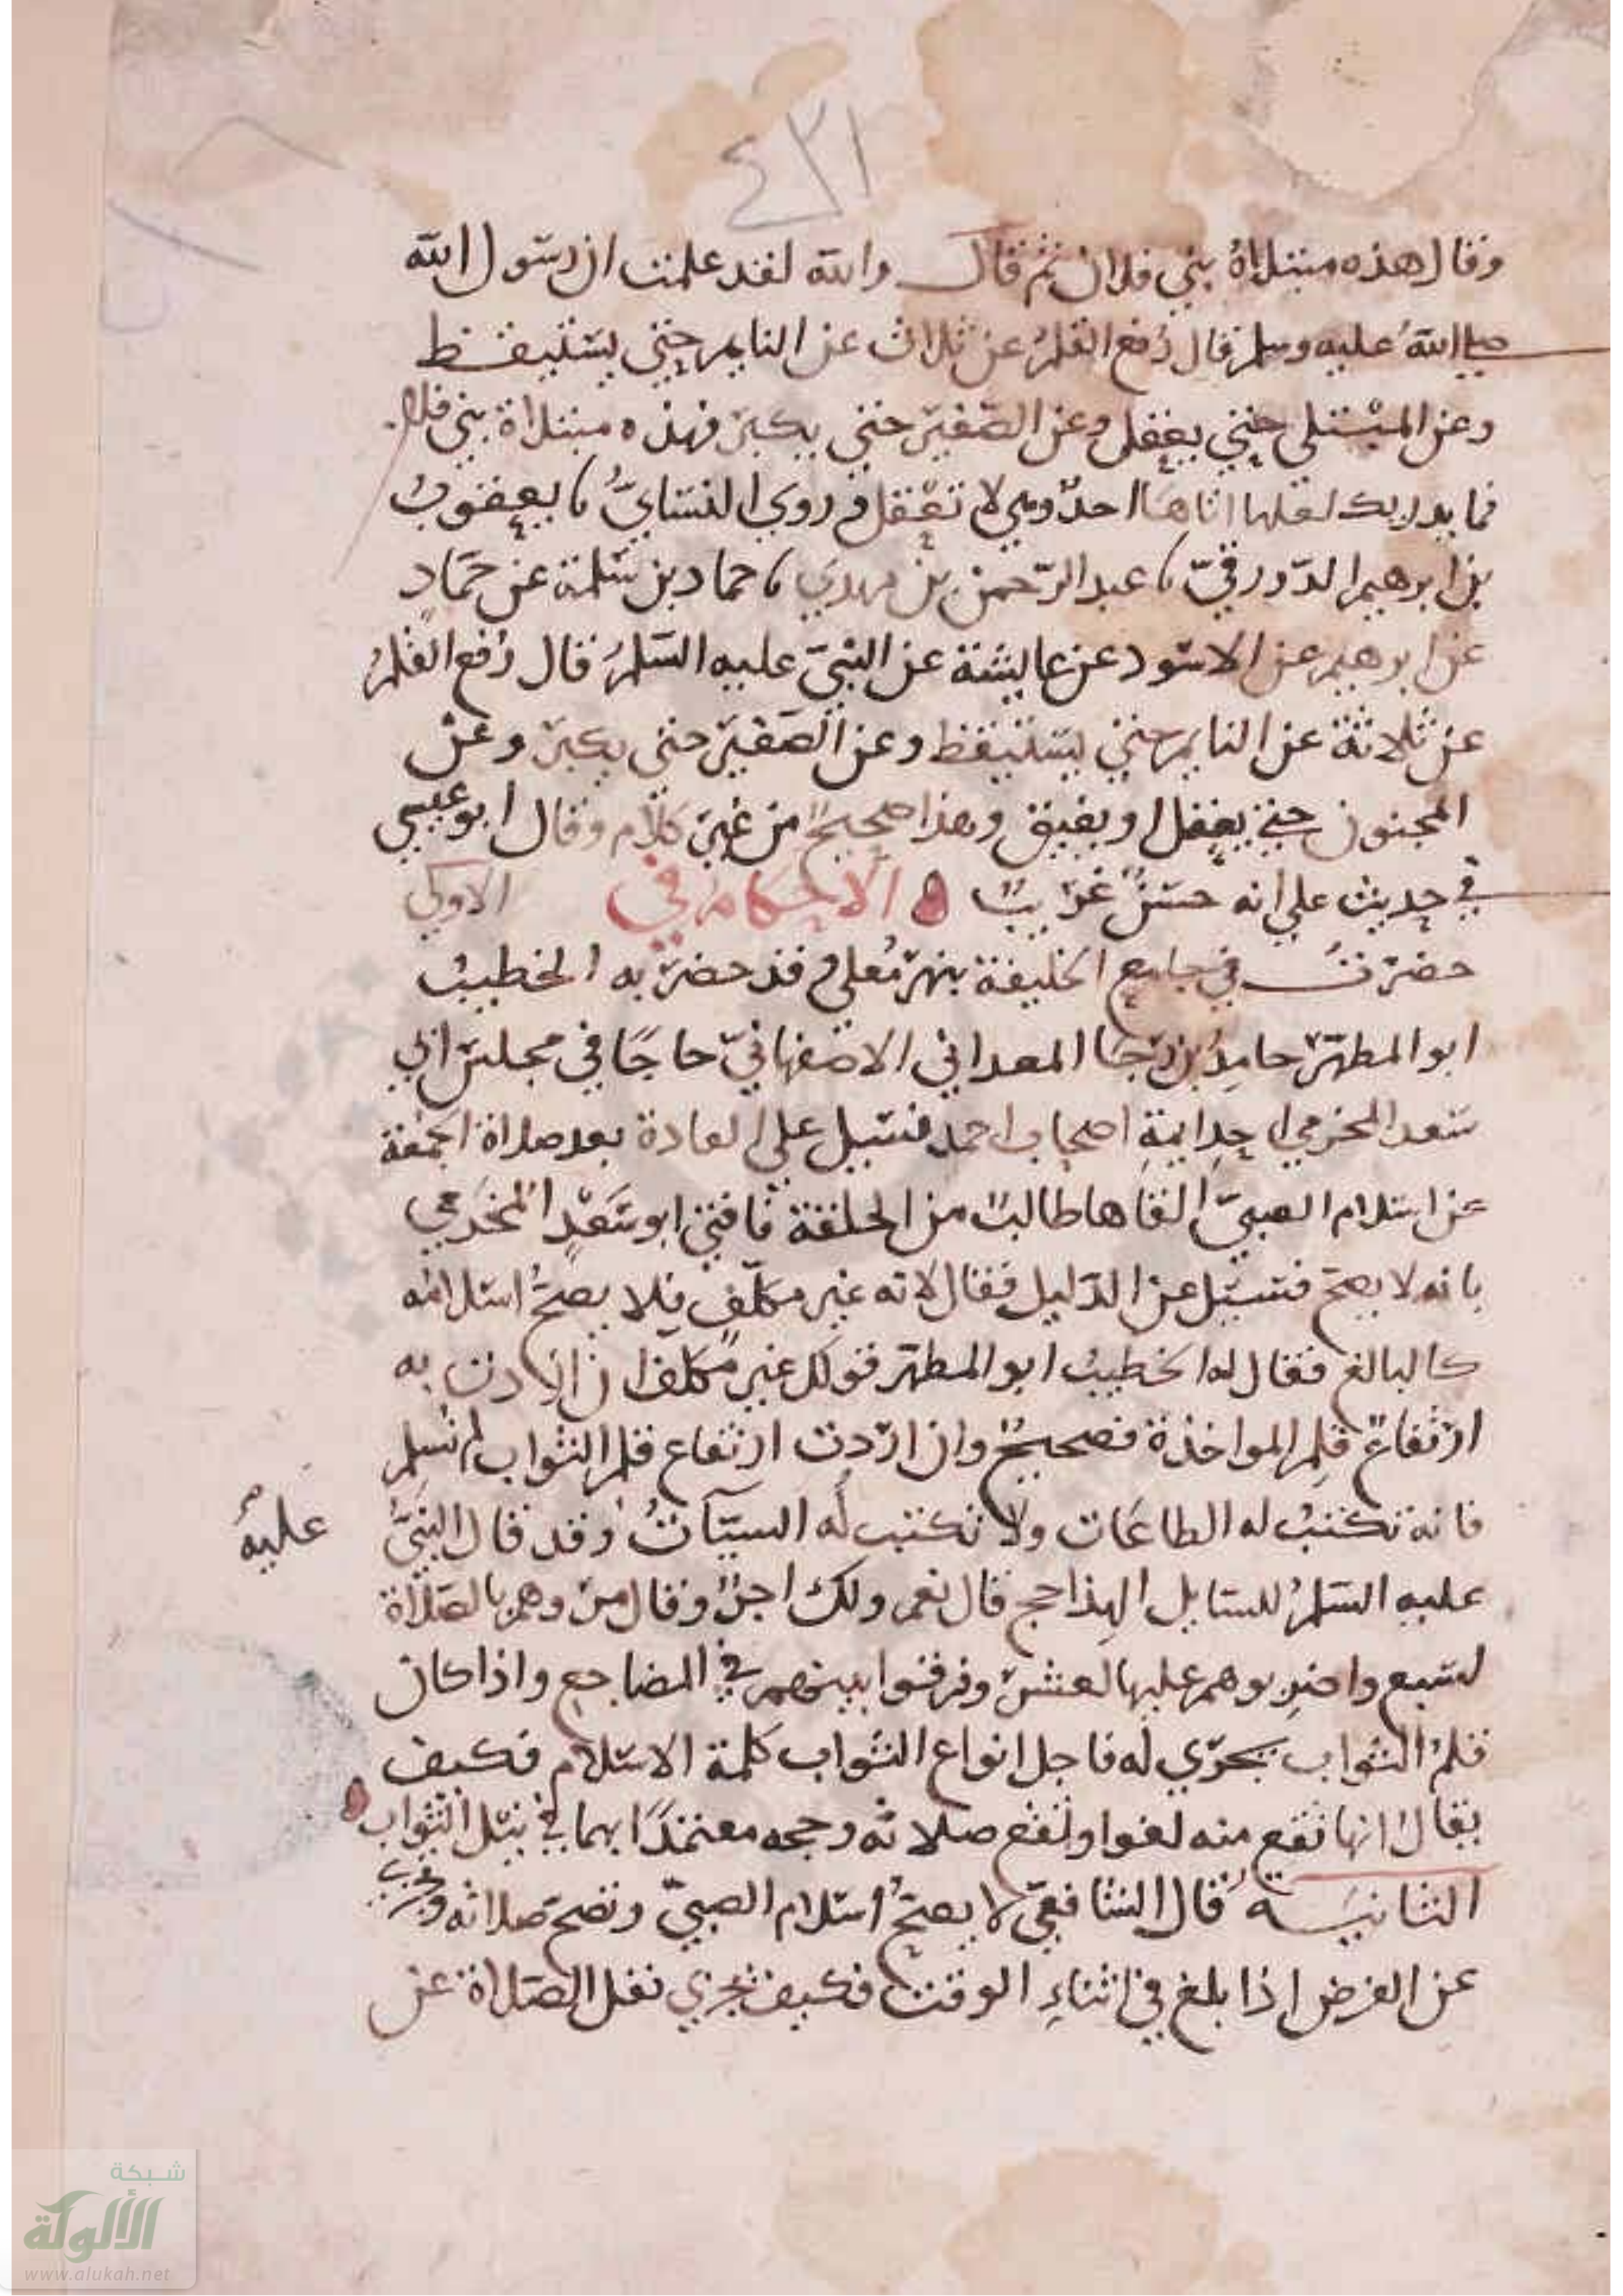 ٤٣١
وقال هذه مبتلاة بني فلان ثم قال والله لقد علمت ان رسول الله
صلى الله عليه وسلم قال رُفع القلمُ عن ثلاث عن النايم حتى يستيقظ
وعن المبْتلى حتى يعقل وعن الصّغير حتى يكبر فهذه مبتلاة بني فلان
فما يدريك لعلها اتاها احدٌ وهي لا تعْقل وروى النسايّ نا يعقوبُ
بن ابرهيم الدّورقيّ نا عبد الرّحمن بن مهدي نا حماد بن سَلمة عن حمّادٍ
عن ابرهيم عن الاسود عن عايشة عن النبيّ عليه السّلمُ قال رُفع القلمُ
عن ثلاثة عن النايم حتى يستيقظ وعن الصّغير حتى يكبر وعنْ
المجنون حتى يعقل او يفيق وهذا صحيحٌ من غير كلام وقال ابو عيسى
في حديث علي انه حسَنٌ غريبٌ ه الاحكام في الاولى
حضرتُ في جامع الخليفة بنهر مُعلى وقد حضر به الخطيبُ
ابو المطهّر حامِدُ بن رَجا المعداني الاصفهانيّ حاجًا في مجلس ابي
سَعد المخرمي احد ايمةِ اصحاب احمد فسُيل على العادة بعد صلاة الجمُعة
عن اسلام الصبيّ القاها طالبٌ من الحلقة فافتى ابو سَعْدٍ المُخَرمي
بانه لا يصحّ فسُيل عن الدّليل فقال لانه غير مكلّفٍ فلا يصحُّ اسلامُه
كالبالغ فقال له الخطيبُ ابو المطهّر قولك غير مكلف ان اردت به
ارتفاعَ قلِم المواخذة فصحيحٌ وان ارَدت ارتفاع قلم الثواب لم نُسلم
فانه تكتبُ له الطاعَات ولا تكتب له السيّآتُ وقد قال النبيُّ عليهُم
عليه السّلمُ للسايل الهذا حج قال نعم ولك اجرٌ وقال مرَوهم بالصّلاة
لسَبع واضرِبوهم عليها لعشر وفرقوا بينهم في المضاجع واذا كان
قلمُ الثواب يجرَي له فاجل انواع الثواب كلمة الاسلام فكيف
يقالُ انها تقع منه لغوا وتقع صلاته وحجه معتمَدًا بهما في نيل الثواب ه
الثانيَة قال الشافعيّ لا يصحُّ اسلام الصبيّ وتصح صلاته وتجزيه
عن الفرض اذا بلغ في اثناءِ الوقت فكيف تجزي نفل الصّلاة عن
شبكة
الألوكة
www.alukah.net